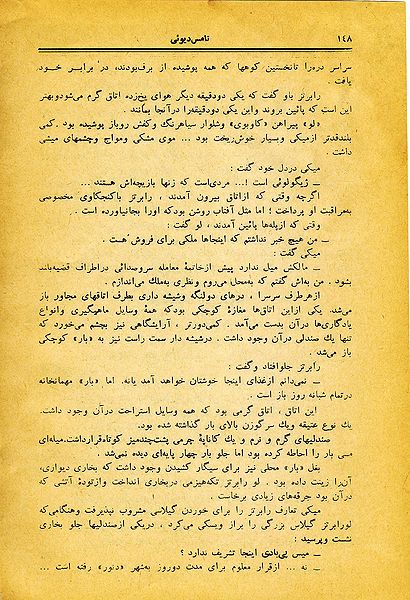 ۱٤۸
تامس دیوئی
سراسر دره‌را تانخستین کوهها که همه پوشیده از برف‌بودند، در برابر خود
یافت.
رابرتز باو گفت که یکی دودقیقه دیگر هوای یخ‌زده اتاق گرم می‌شودوبهتر
این است که پائین بروند واین یکی دودقیقه‌را درآنجا بمانند.
«لو» پیراهن «کاوبوی» وشلوار سیاهرنگ وکفش روباز پوشیده بود. کمی
بلندقدتر ازمیکی وبسیار خوش‌ریخت بود ... موی مشکی ومواج وچشمهای میشی
داشت.
میکی دردل خود گفت:
ــ ژیگولوئی است !... مردی‌است که زنها بازیچه‌اش هستند ...
اگرچه وقتی که ازاتاق بیرون آمدند ، رابرتز باکنجکاوی مخصوصی
به‌مراقبت او پرداخت ؛ اما مثل آفتاب روشن بودکه اورا بجانیاورده است .
وقتی که ازپله‌ها پائین آمدند ، لو گفت :
ــ من هیچ خبر نداشتم که اینجاها ملکی برای فروش هست .
میکی گفت :
ــ مالکش میل ندارد پیش ازخاتمهٔ معامله سروصدائی دراطراف قضیه‌بلند
بشود . من به‌اش گفتم که به‌محل می‌روم ونظری به‌ملك می‌اندازم .
ازهرطرف سرسرا ، درهای دولنگه وشیشه داری بطرف اتاقهای مجاور باز
می‌شد. یکی ازاین اتاق‌ها مغازهٔ کوچکی بودکه همهٔ وسایل ماهیگیری وانواع
یادگاری‌ها درآن بدست می‌آمد . کمی‌دورتر ، آرایشگاهی نیز بچشم می‌خورد که
تنها یك صندلی درآن وجود داشت . درشیشه دار سمت راست نیز به «بار» کوچکی
باز می‌شد .
رابرتز جلوافتاد وگفت :
ــ نمی‌دانم ازغذای اینجا خوشتان خواهد آمد یانه. اما «بار» مهمانخانه
درتمام شبانه روز باز است .
این اتاق ، اتاق گرمی بود که همه وسایل استراحت درآن وجود داشت.
یك نوع عتیقه ویك سرگوزن بالای بار گذاشته شده بود.
صندلیهای گرم و نرم و یك کاناپهٔ چرمی پشت‌چندمیز کوتاه‌قرارداشت.میله‌ای
مسی بار را احاطه کرده بود اما جلو بار چهار پایه‌ای دیده نمی‌شد .
بغل «بار» محلی نیز برای سیگار کشیدن وجود داشت که بخاری دیواری،
آن‌را زینت داده بود . لو رابرتز تکه‌هیزمی دربخاری انداخت وازتودهٔ آتشی که
درآن بود جرقه‌های زیادی برخاست .
میکی تعارف رابرتز را برای خوردن گیلاسی مشروب نپذیرفت وهنگامی‌که
لورابرتز گیلاس بزرگی را براز ویسکی می‌کرد ، دریکی ازصندلیها جلو بخاری
نشست وپرسید :
ــ میس پی‌بادی اینجا تشریف ندارد ؟
ــ نه ... ازقرار معلوم برای مدت دوروز به‌شهر «دنور» رفته است ...